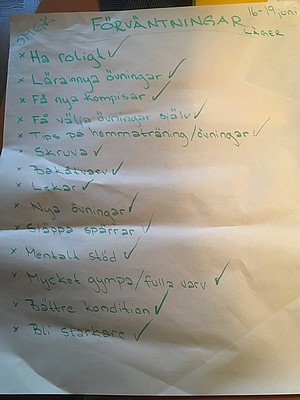 FÖRVÄNTNINGAR 16-19 juni
LÄGER
x Ha roligt ✓
x Lära nya övningar ✓
x Få nya kompisar ✓
x Få välja övningar själv ✓
x Tips på hemmaträning/övningar ✓
x Skruva ✓
x Bakåtvarv ✓
x Lekar ✓
x Nya övningar ✓
x Släppa spärrar ✓
x Mentalt stöd ✓
x Mycket gympa/fulla varv ✓
x Bättre kondition ✓
x Bli starkare ✓